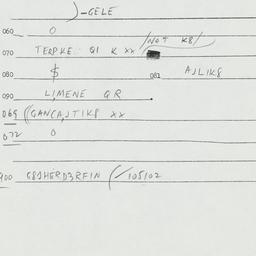 )-GELE
060 O
070 TERPKE: QI K XX /NOT K8/
080 $ 081 AJLIK8
090 LIMENE QR.
069 ((GANCAJTIK8 XX
072 O
900 G8JHERD3RFIN (/105102